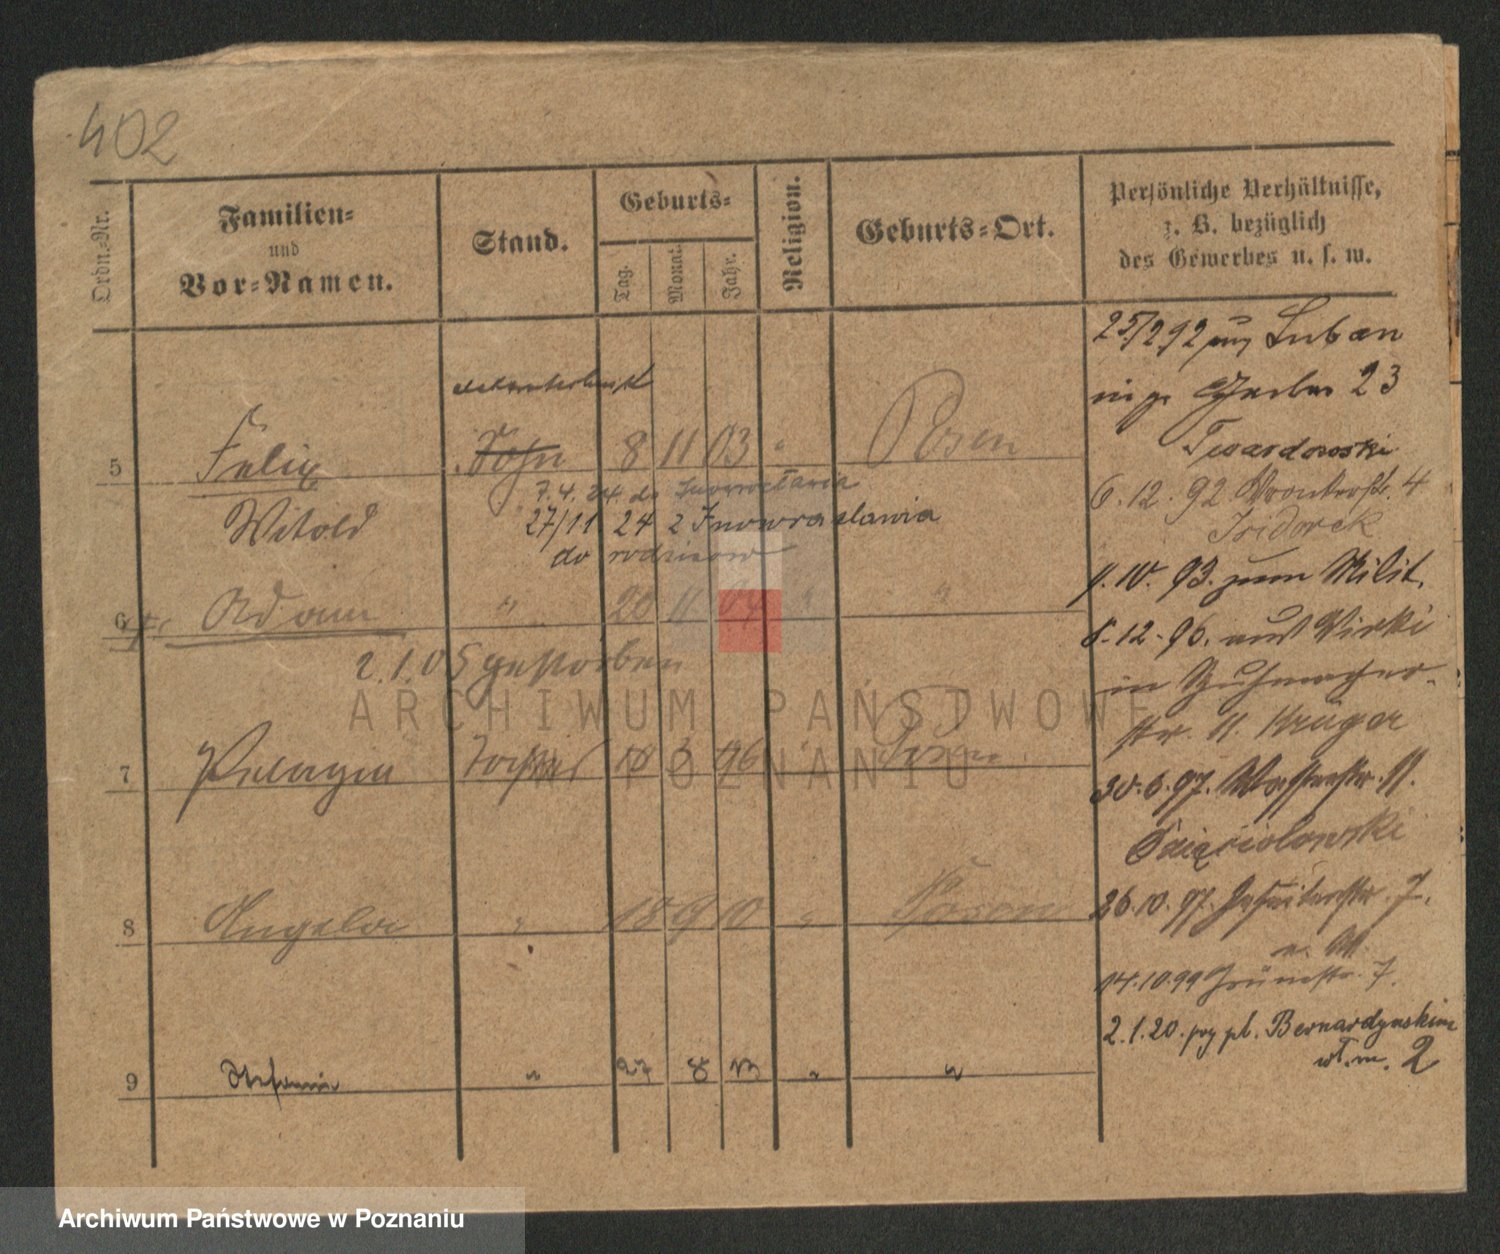 402
Ordn.-Nr.
Familien=
und
Vor=Namen.
Stand.
Geburts=
Tag.
Monat.
Jahr.
Religion.
Geburts=Ort.
Persönliche Verhältnisse,
z. B. bezüglich
des Gewerbes u. s. w.
25/2 92 Luban
23
Twardowski
5 Felix Sohn 8 11 03 " Posen
7.4.24 do Inowrocławia
Witold 27/11 24 z Inowrocławia
do rodziców
6.12.92 4
Isidorek
93. zum Milit.
6 Adam " 20 11 04 " "
2.1.05 gestorben
8.12.96. aus Wirki
in
str. 11. Krüger
7 Pelagia Tochter 18 3 96 " Posen
30.6.97. Wasserstr. 11.
8 Angela " 18 9 10 " Posen
26.10.97. Jesuitenstr. 7.
14.10.99 Grünestr. 7.
2.1.20. przy pl. Bernardyńskim
2
9 Stefania " 27 8 13 " "
ARCHIWUM PAŃSTWOWE
W POZNANIU
Archiwum Państwowe w Poznaniu